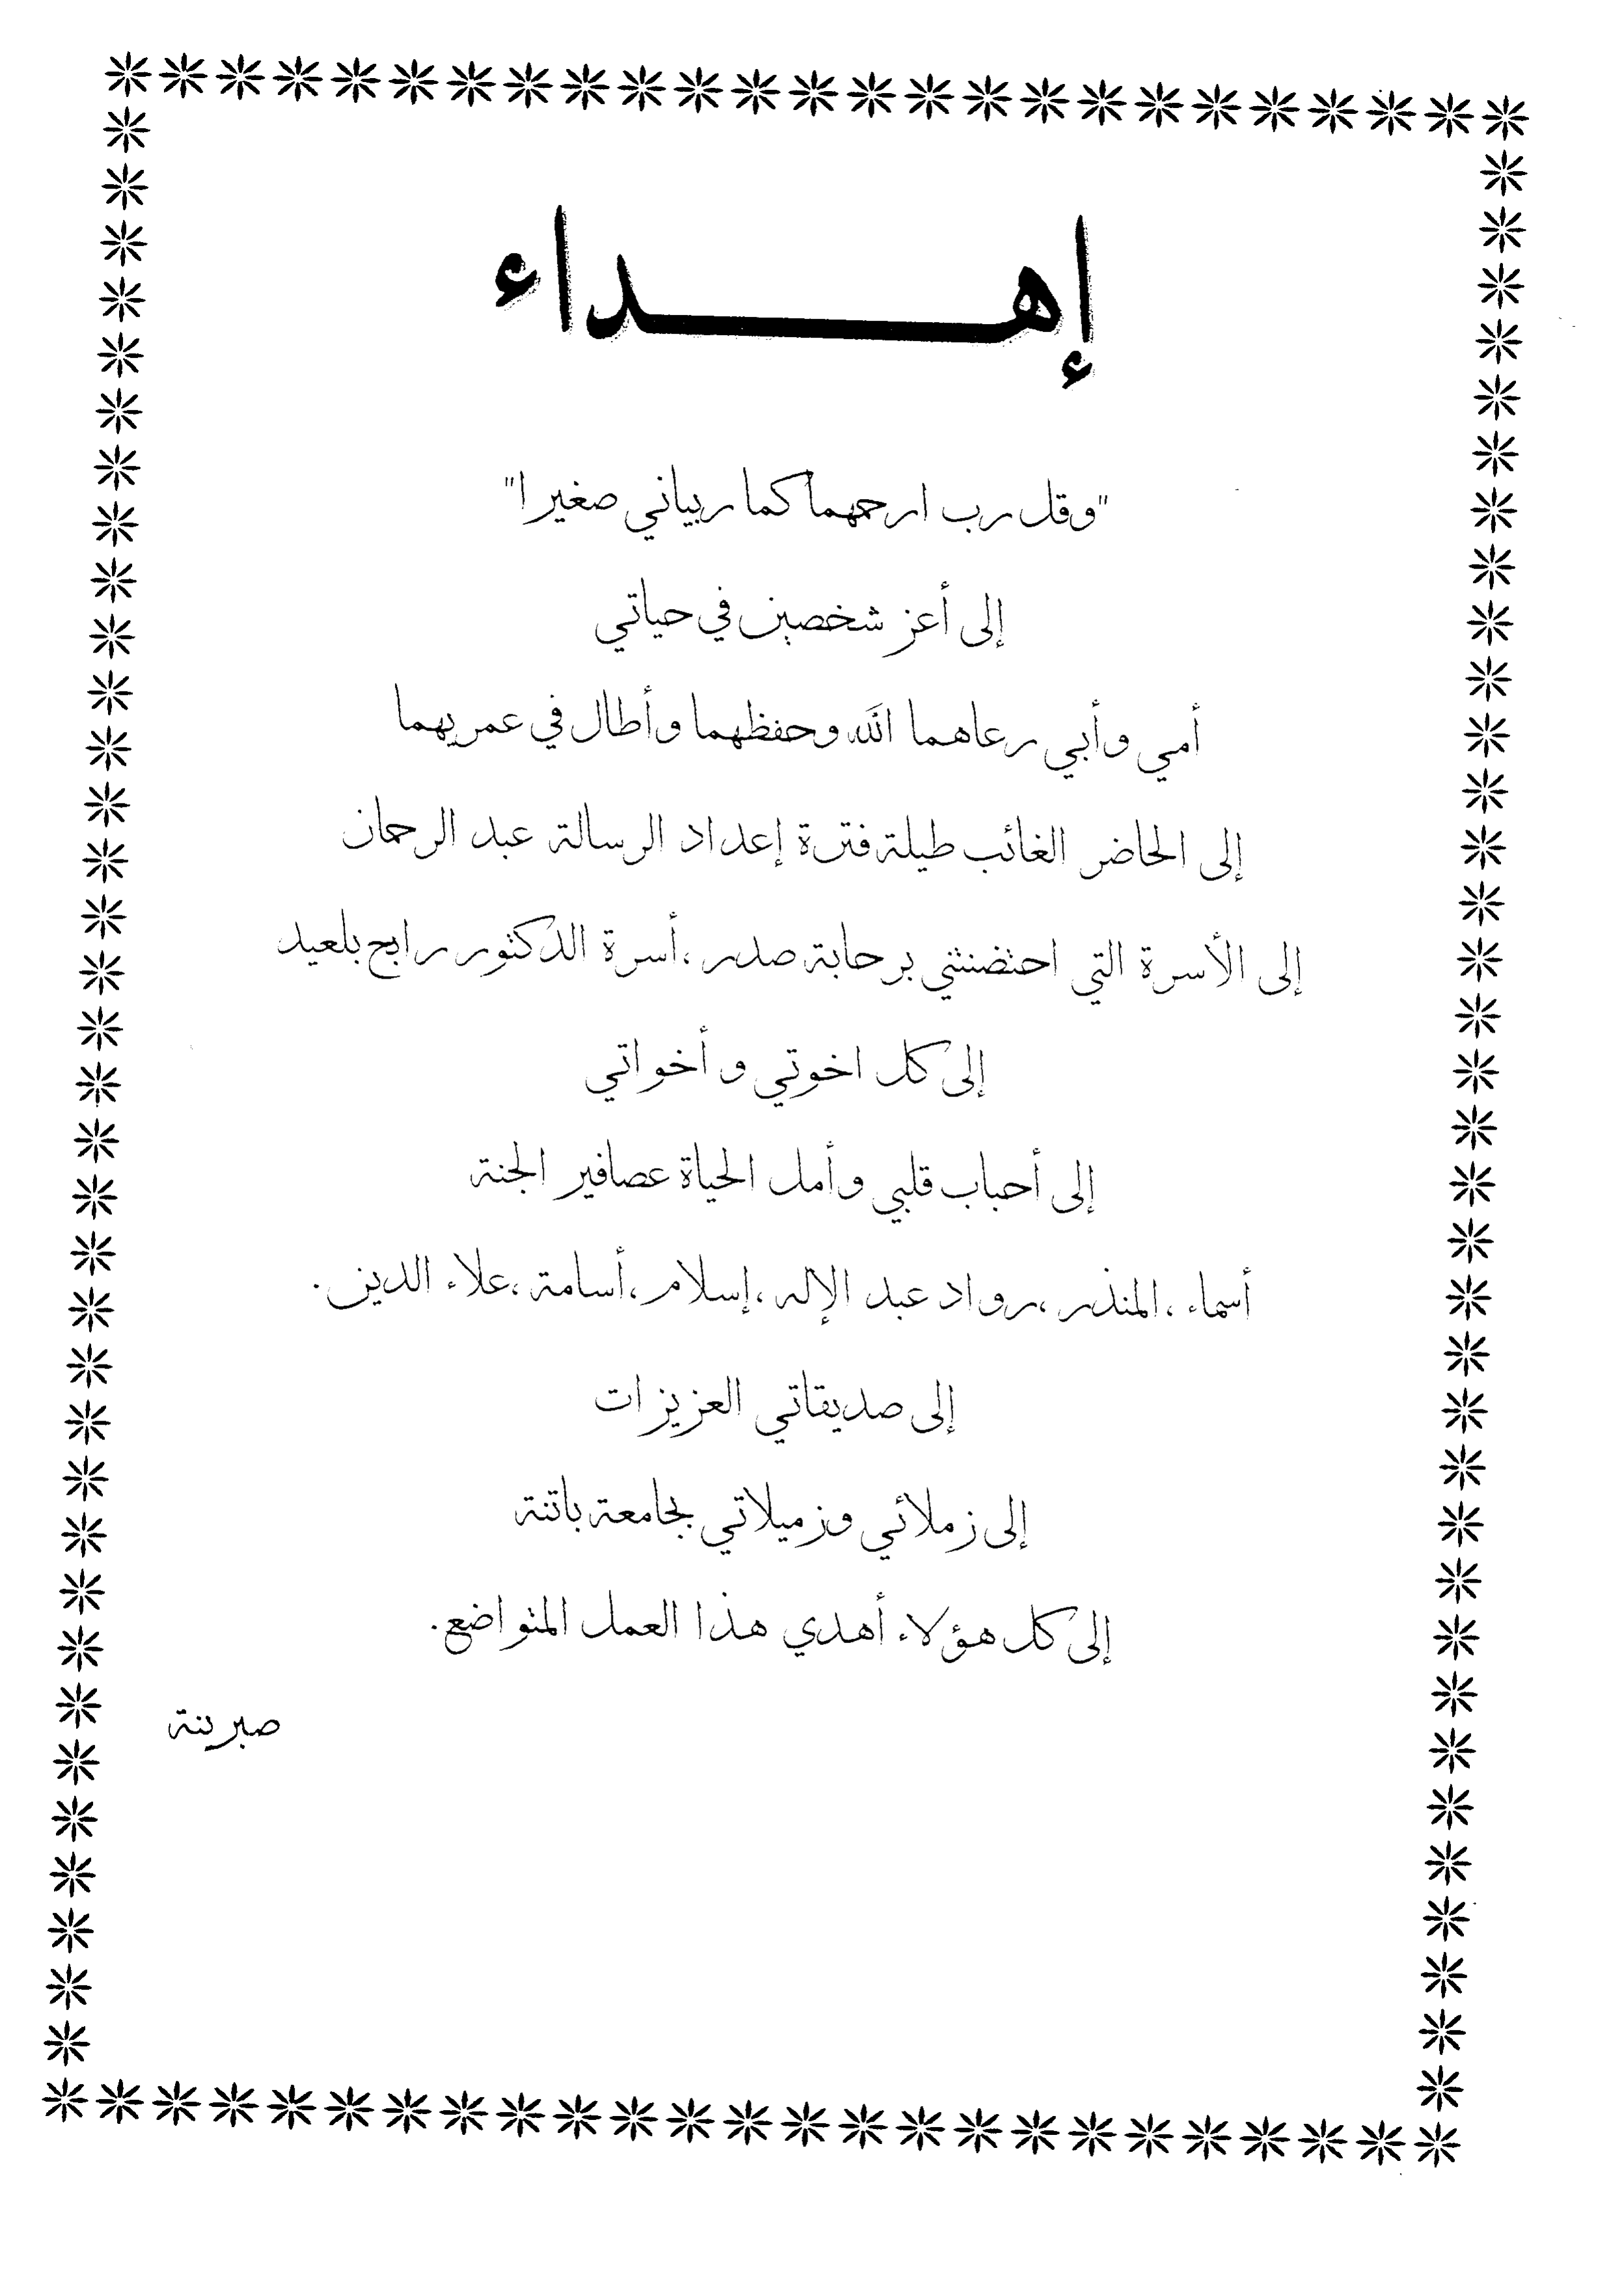 إهـــــداء
"وقل رب ارحمهما كما ربياني صغيرا"
إلى أعز شخصين في حياتي
أمي وأبي رعاهما الله وحفظهما وأطال في عمريهما
إلى الحاضر الغائب طيلة فترة إعداد الرسالة عبد الرحمان
إلى الأسرة التي احتضنتني برحابة صدر ،أسرة الدكتور رابح بلعيد
إلى كل اخوتي و أخواتي
إلى أحباب قلبي وأمل الحياة عصافير الجنة
أسماء ،المنذر ،رواد عبد الإله ،إسلام ،أسامة ،علاء الدين.
إلى صديقاتي العزيزات
إلى زملائي وزميلاتي بجامعة باتنة
إلى كل هؤلاء أهدي هذا العمل المتواضع.
صبرينة